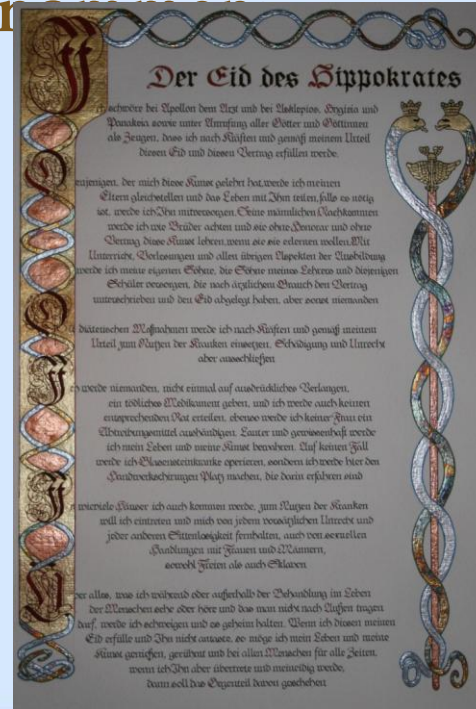 Der Eid des Hippokrates
Ich schwöre bei Apollon dem Arzt und bei Asklepios, Hygieia und
Panakeia sowie unter Anrufung aller Götter und Göttinnen
als Zeugen, dass ich nach Kräften und gemäß meinem Urteil
diesen Eid und diesen Vertrag erfüllen werde.
Denjenigen, der mich diese Kunst gelehrt hat, werde ich meinen
Eltern gleichstellen und das Leben mit Ihm teilen, falls es nötig
ist, werde ich Ihn mitversorgen. Seine männlichen Nachkommen
werde ich wie Brüder achten und sie ohne Honorar und ohne
Vertrag diese Kunst lehren, wenn sie sie erlernen wollen. Mit
Unterricht, Vorlesungen und allen übrigen Aspekten der Ausbildung
werde ich meine eigenen Söhne, die Söhne meines Lehrers und diejenigen
Schüler versorgen, die nach ärztlichem Brauch den Vertrag
unterschrieben und den Eid abgelegt haben, aber sonst niemanden
diätetischen Maßnahmen werde ich nach Kräften und gemäß meinem
Urteil zum Nutzen der Kranken einsetzen, Schädigung und Unrecht
aber ausschließen
Ich werde niemanden, nicht einmal auf ausdrückliches Verlangen,
ein tödliches Medikament geben, und ich werde auch keinen
entsprechenden Rat erteilen, ebenso werde ich keiner Frau ein
Abtreibungsmittel aushändigen. Lauter und gewissenhaft werde
ich mein Leben und meine Kunst bewahren. Auf keinen Fall
werde ich Blasensteinkranke operieren, sondern ich werde hier den
Handwerkschirurgen Platz machen, die darin erfahren sind
In wieviele Häuser ich auch kommen werde, zum Nutzen der Kranken
will ich eintreten und mich von jedem vorsätzlichen Unrecht und
jeder anderen Sittenlosigkeit fernhalten, auch von sexuellen
Handlungen mit Frauen und Männern,
sowohl Freien als auch Sklaven
Über alles, was ich während oder außerhalb der Behandlung im Leben
der Menschen sehe oder höre und das man nicht nach Außen tragen
darf, werde ich schweigen und es geheim halten. Wenn ich diesen meinen
Eid erfülle und Ihn nicht antaste, so möge ich mein Leben und meine
Kunst genießen, gerühmt und bei allen Menschen für alle Zeiten,
wenn ich Ihn aber übertrete und meineidig werde,
dann soll das Gegenteil davon geschehen